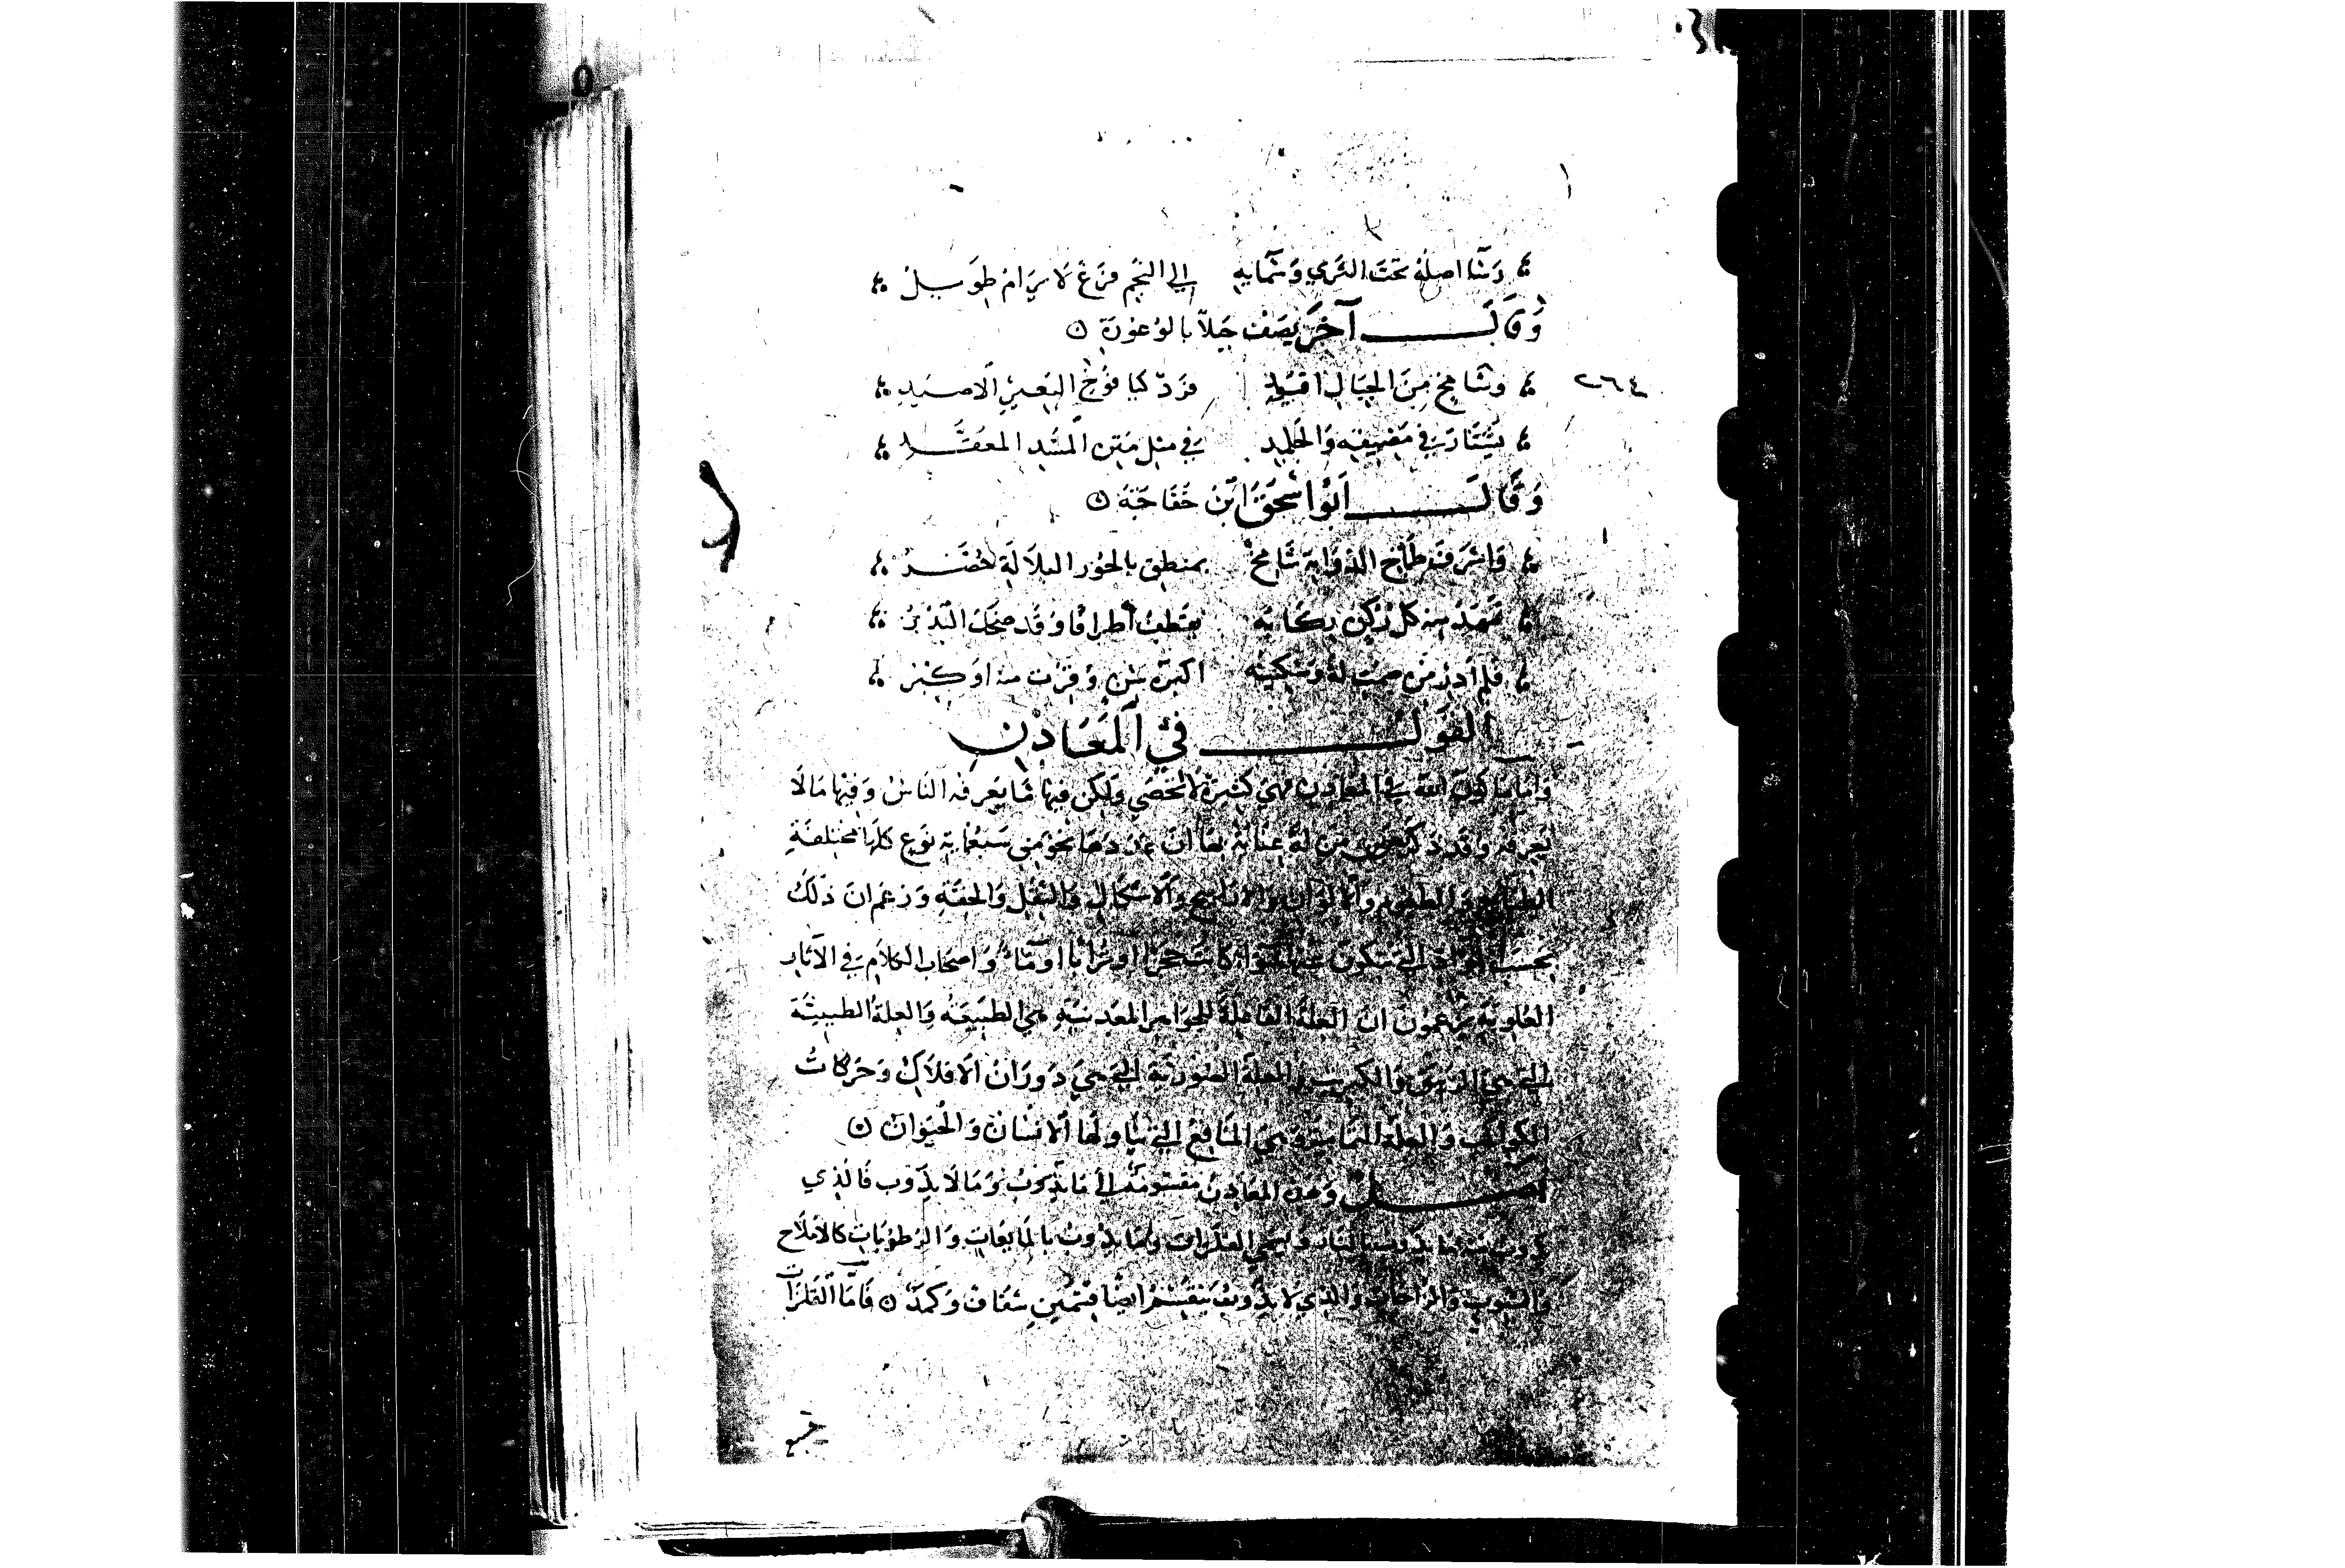 رسا اصله تحت الثري وسما به الي النجم فرع لا يرام طويل
وقال آخر يصف جبلا بالوعورة
وشامخ من الجبال اقود فرد كيا فوخ البعير الاصيد
٢٦٤
يستار في مضيفه والجليد في مثل متن المسد المعقد
وقال ابو اسحق ابن خفاجة
واشرف طماح الذوابة شامخ بمنطق بالجوزا ليلا له خصر
تمهد منه كل ركن ركانة يقطب اطراقا وقد ضحك البدر
فلم ادر من صمت له وسكينة اكبرة سن وقرت منه او كبر
القول في المعادن
واما ما كون الله في المعادن فهي كثيرة لا تحصي ولكن فيها ما يعرفه الناس وفيها ما لا
يعرفه وقد ذكر بعض من له عناية بها ان عددها نحو من سبعماية نوع كلها مختلفة
الطبائع والطعوم والالوان والاراييح والاشكال والثقل والخفة وزعم ان ذلك
بحسب المواد التي تتكون منها سوا كانت حجرا او ترابا او ماء واصحاب الكلام في الآثار
العلوية يزعمون ان العلة الفاعلة للجواهر المعدنية هي الطبيعة والعلة الطينية
التي هي الزيبق والكبريت والعلة الصورية التي هي دوران الافلاك وحركات
الكواكب والعلة التمامية وهي المنافع التي يناولها الانسان والحيوان
فصل وهذه المعادن مقسومة الي ما يذوب وما لا يذوب فالذي
يذوب منه ما يذوب بالنار وهي الفلزات ومنها ما يذوب بالمايعات والرطوبات كالاملاح
والشبوب والزاجات والذي لا يذوب ينقسم ايضا قسمين شفاف وكمد فاما الفلزات